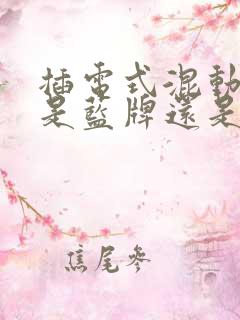 插電式混動
是藍牌還是
焦尾參